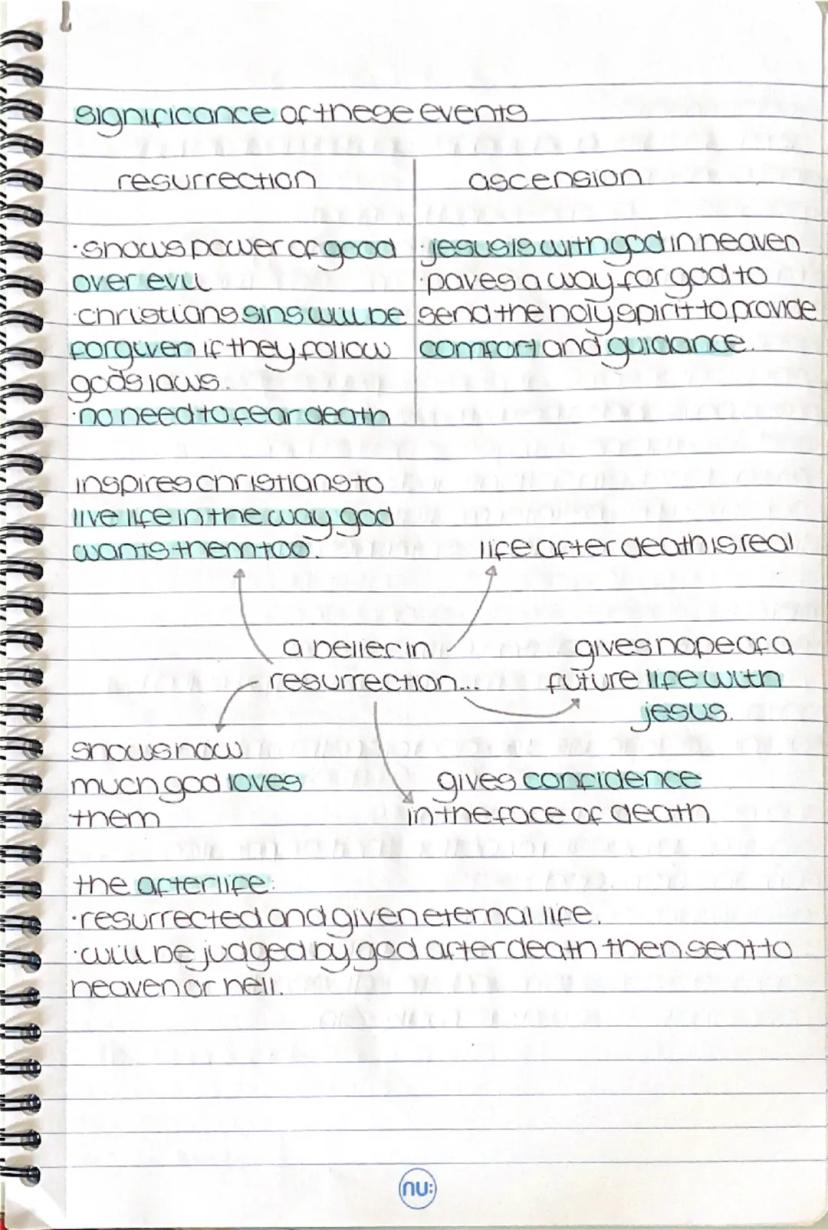 significance of these events
resurrection
ascension
·shows power of good
over evil
·christians sins will be
forgiven if they follow
gods laws.
·no need to fear death
·jesus is with god in heaven
·paves a way for god to
send the holy spirit to provide
comfort and guidance.
inspires christians to
live life in the way god
wants them too.
life after death is real
a belief in
resurrection...
gives hope of a
future life with
jesus.
shows how
much god loves
them
gives confidence
in the face of death
the afterlife:
·resurrected and given eternal life.
·will be judged by god after death then sent to
heaven or hell.
nu: